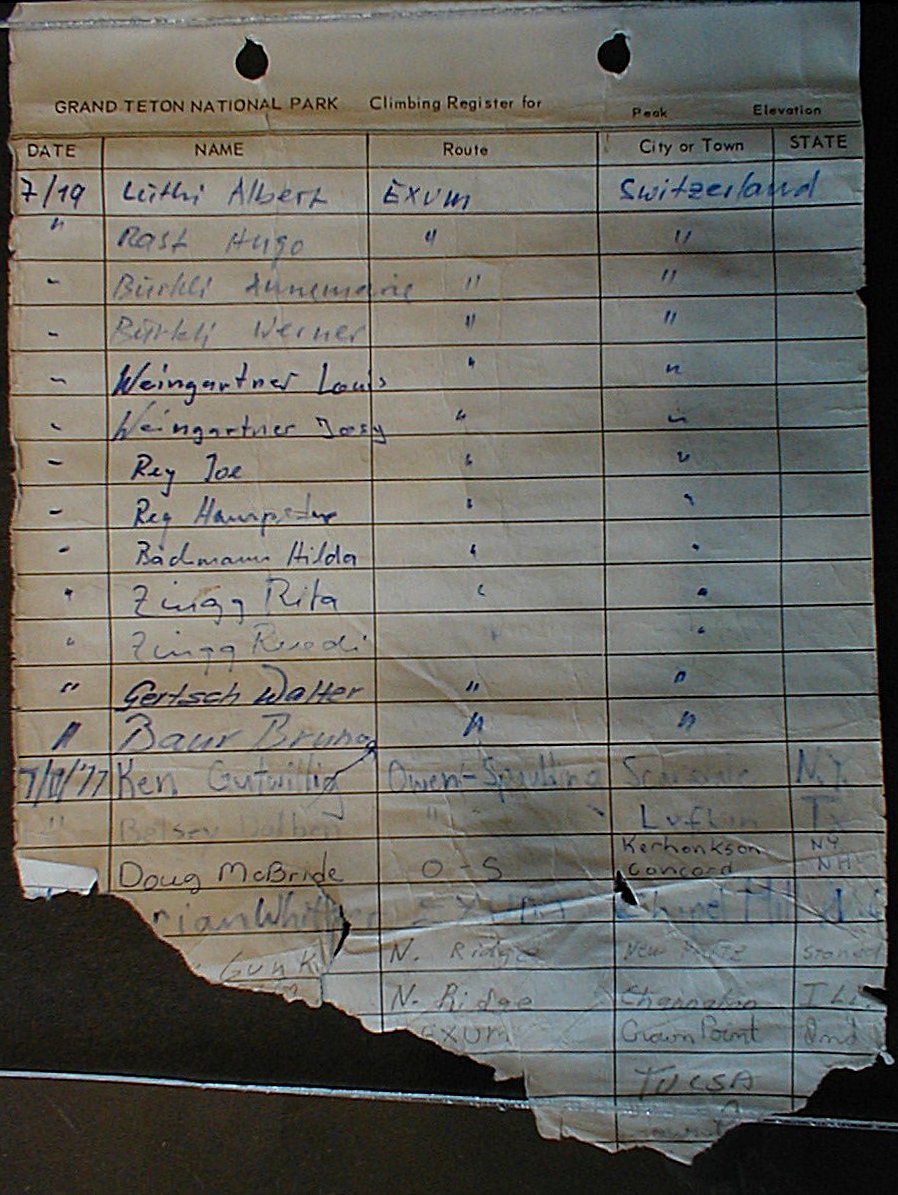 GRAND TETON NATIONAL PARK Climbing Register for Peak Elevation
DATE NAME Route City or Town STATE
7/19 Lüthi Albert EXUM Switzerland
" Rast Hugo " "
- Bürkli Annemarie " "
- Bürkli Werner " "
- Weingartner Louis " "
- Weingartner Josy " "
- Rey Joe " "
- Rey Hanspeter " "
" Bachmann Hilda " "
" Zingg Rita " "
" Zingg Ruedi " "
" Gertsch Walter " "
" Baur Bruno " "
Ken Gutwillig Owen-Spaulding Scarsdale N.Y.
" Betsey " Lufkin Tx
Kerhonkson NY
Doug McBride O-S Concord NH
EXUM Chapel Hill N.C
Gunk N. Ridge New Paltz stoned
N. Ridge Channahon ILL
EXUM Crown Point Ind
TULSA